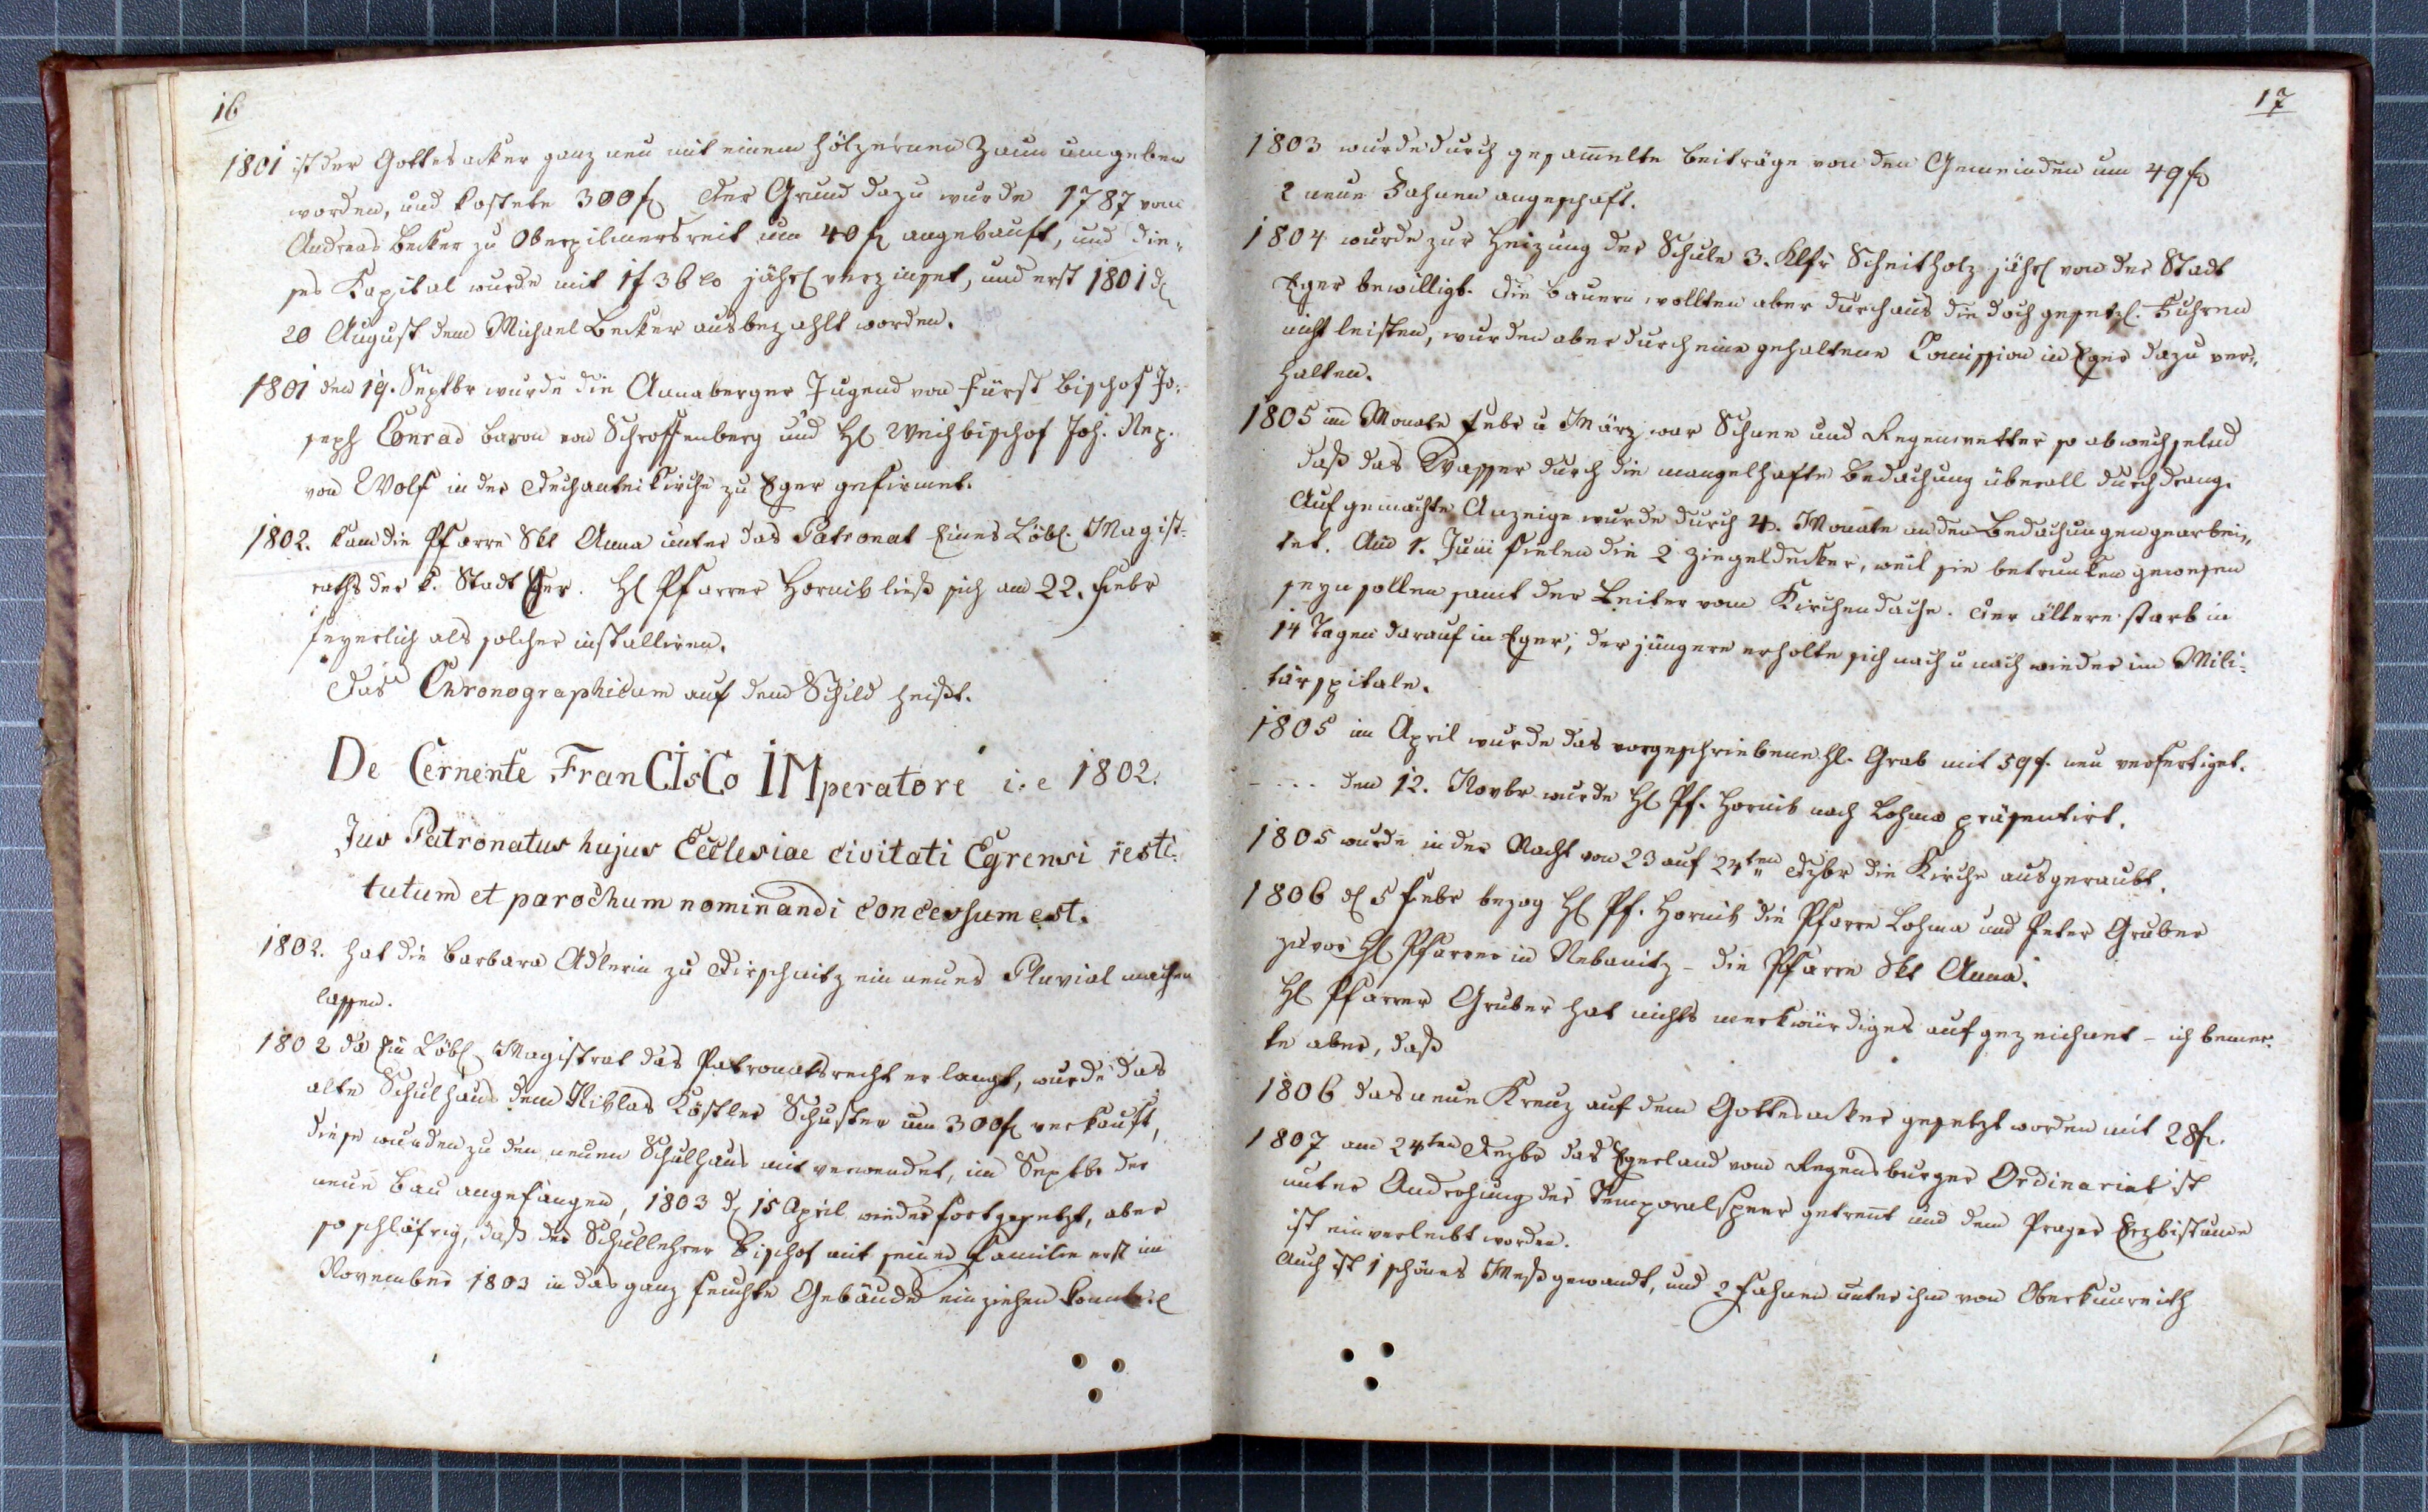 16
1801 ist der Gottesacker ganz neu mit einem hölzernen Zaun umgeben
worden, und kostete 300 f. Der Grund dazu wurde 1787 vom
Andreas Becker zu Oberpilmersreit um 40 f. angekauft, und die-
ses Kapital wurde mit 1 f 36 xr jährl. verzinset, und erst 1801 d.
20 August dem Michael Becker ausbezahlt worden.
1801 den 19. Septbr wurde die Annaberger Jugend von Fürst Bischof Jo-
seph Conrad Baron von Schroffenberg und H. Weihbischof Joh. Nep.
von Wolf in der Dechanteikirche zu Eger gefirmet.
1802. kam die Pfarre Skt Anna unter das Patronat Eines Löbl. Magist-
raths der k. Stadt Eger. H. Pfarrer Hornik ließ sich am 22. Febr
feyerlich als solcher installiren.
Das Chronographicum auf dem Schild heißt.
De Cernente FranCIsCo IMperatore i. e 1802.
Jus Patronatus hujus Ecclesiae civitati Egrensi resti-
tutum et parochum nominandi concessum est.
1802. hat die Barbara Adlerin zu Dirschnitz ein neues Pluvial machen
lassen.
1802 da Ein Löbl. Magistrat das Patronatsrecht erlangt, wurde das
alte Schulhaus dem Niklas Köstler Schuster um 300 f. verkauft,
diese wurden zu den neuen Schulhaus mit verwendet, im Septbr der
neue Bau angefangen, 1803 d. 15 April wieder fortgesetzt, aber
so schläfrig, daß der Schullehrer Bischof mit seiner Familie erst im
November 1803 in das ganz feuchte Gebäude einziehen konnte.
17
1803 wurde durch gesam̄elte Beiträge von den Gemeinden um 49 f.
2 neue Fahnen angeschaft.
1804 wurde zur Heizung der Schule 3. Klftr Scheitholz jährl. von der Stadt
Eger bewilligt. Die Bauern wollten aber durchaus die doch gesetzl. Fuhren
nicht leisten, wurden aber durch eine gehaltene Com̄ission in Eger dazu ver-
halten.
1805 im Monate Febr u März war Schnee und Regenwetter so abwechselnd
daß das Wasser durch die mangelhafte Bedachung überall durchdrang.
Auf gemachte Anzeige wurde durch 4. Monate an den Bedachungen gearbei-
tet. Am 1. Juni fielen die 2 Ziegeldecker, weil sie betrunken gewesen
seyn sollen samt der Leiter vom Kirchendache. Der ältere starb in
14 Tagen darauf in Eger; der jüngere erholte sich nach u nach wieder im Mili-
tärspitale.
1805 im April wurde das vorgeschriebene hl. Grab mit 59 f. neu verfertiget.
- ... den 12. Novbr wurde H. Pf. Hornik nach Lohma präsentirt.
1805 wurde in der Nacht von 23 auf 24ten Dezbr die Kirche ausgeraubt.
1806 d. 5 Febr bezog H. Pf. Hornik die Pfarre Lohma und Peter Gruber
zuvor H. Pfarrer in Nebanitz - die Pfarre Skt Anna.
H. Pfarrer Gruber hat nichts merkwürdiges aufgezeichnet - ich bemer-
ke aber, daß
1806 das neue Kreuz auf dem Gottesacker gesetzt worden mit 28 f.
1807 am 24ten Dezbr das Egerland vom Regensburger Ordinariat ist
unter Androhung der Temporalsperr getren̄t und dem Prager Erzbistume
ist einverleibt worden.
Auch ist 1 schönes Meßgewandt, und 2 Fahnen unter ihm von Oberkunreith